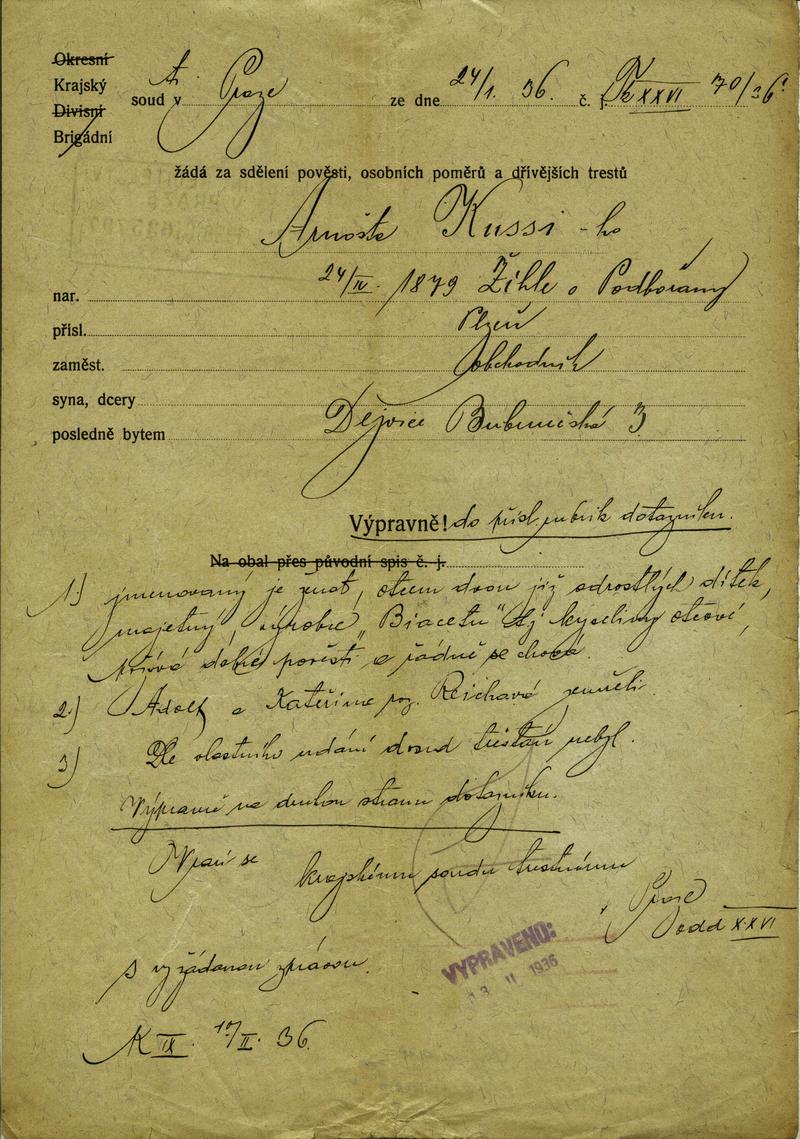 Okresní
Krajský
Divisní
Brigádní
tr.
soud v Praze ze dne 24/1. 36. č. j. Tk XXVI 70/36
žádá za sdělení pověsti, osobních poměrů a dřívějších trestů
Arnošta Kussi-ho
nar. 24/IV. 1879 Žihle o Podbořany
přísl. Plzeň
zaměst. obchodník
syna, dcery
posledně bytem Dejvice Bubenečská 3
Výpravně! do přísl. rubrik dotazníku.
Na obal přes původní spis č. j.
1.) jmenovaný je ženat, otcem dvou již odrostlých dítek,
majetný, výrobce „Biacetu" tj kyseliny octové,
požívá dobré pověsti a řádně se chová.
2.) Adolf a Kateřina roz. Reichová zemřeli.
3) Dle vlastního udání dosud trestán nebyl.
Výpravně na druhou stranu dotazníku.
Vrací se krajskému soudu trestnímu
v Praze
odd XXVI
s vyžádanou zprávou.
K IX. 10/II. 36.
VYPRAVENO:
13 II 1936